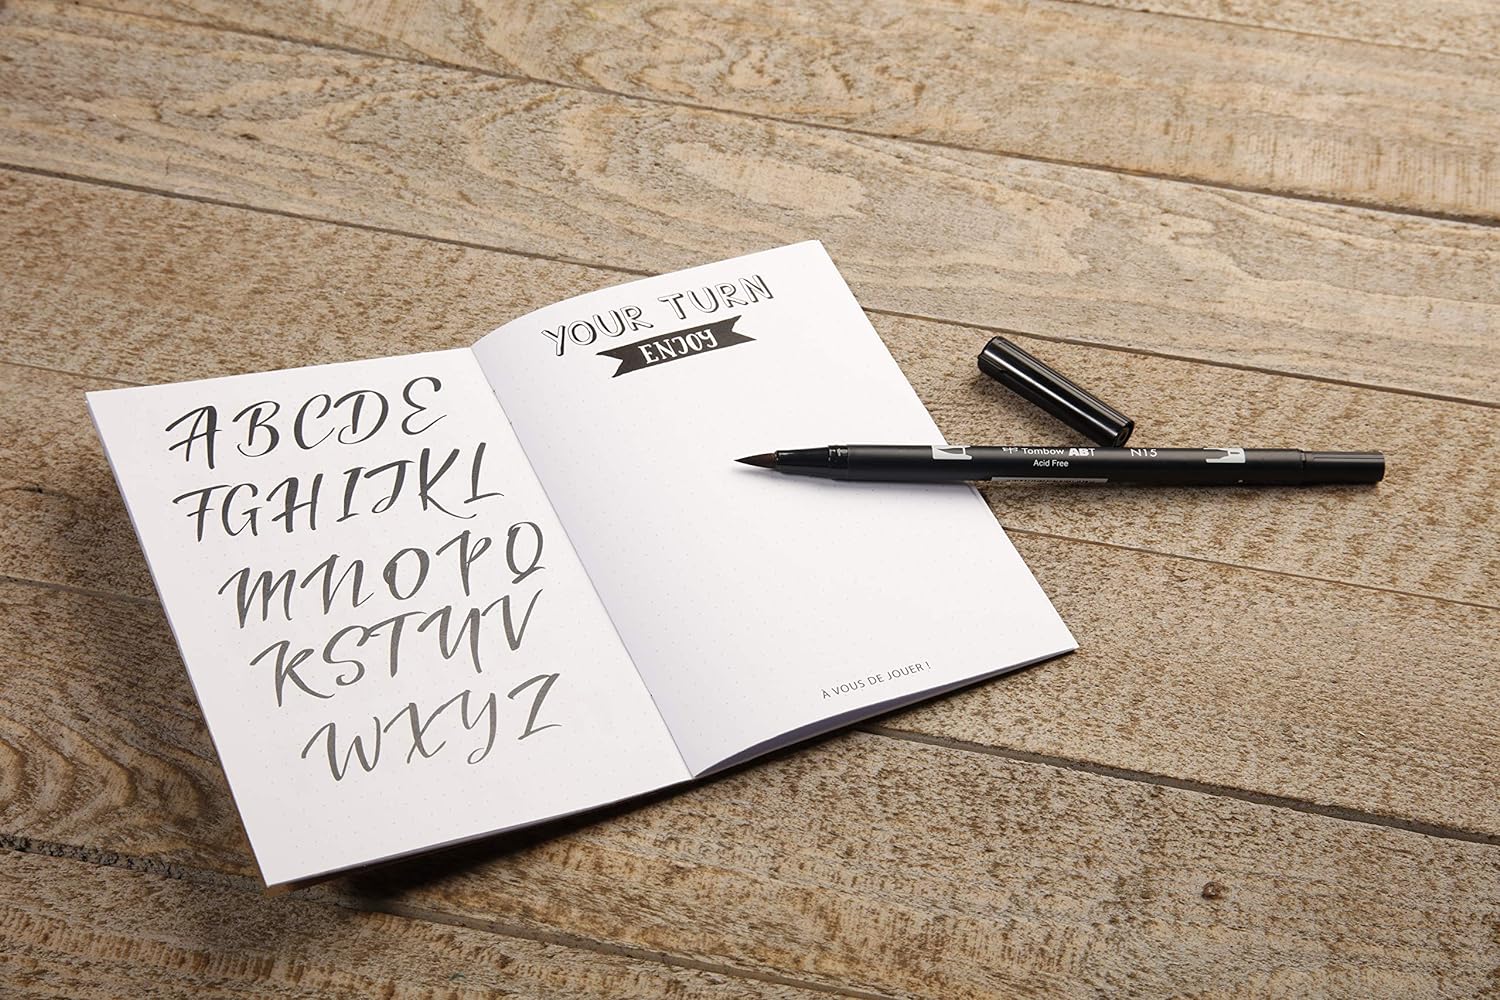 ABCDE
FGHIJKL
MNOPQ
RSTUV
WXYZ
YOUR TURN
ENJOY
À VOUS DE JOUER !
Tombow ABT N15
Acid Free